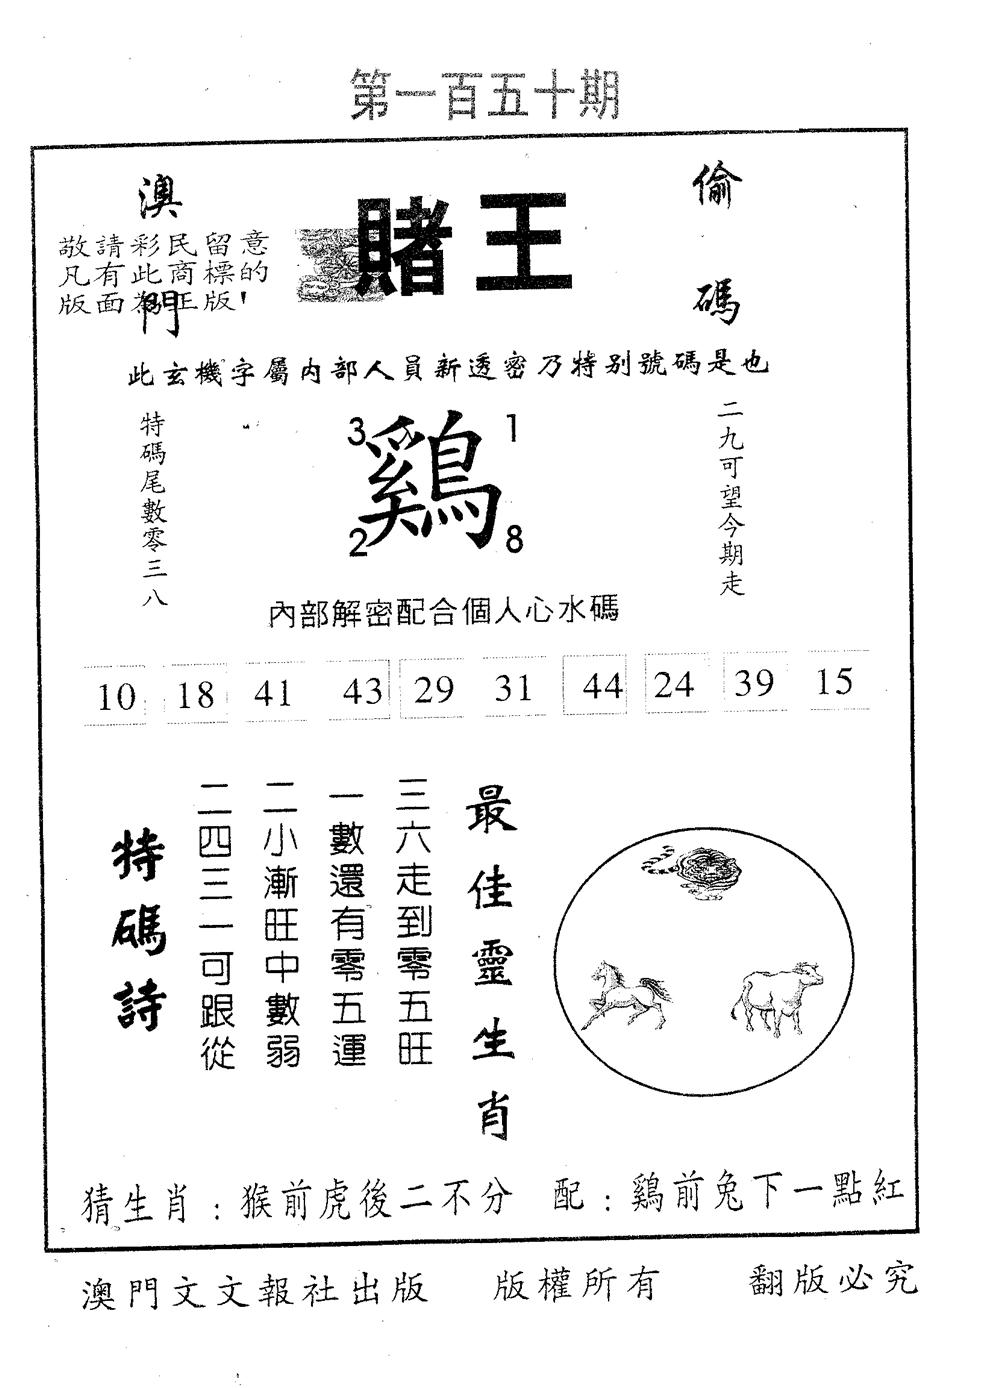 第一百五十期
澳門
賭王
偷碼
敬請彩民留意
凡有此商標的
版面為正版!
此玄機字屬內部人員新透密乃特別號碼是也
特碼尾數零三八
3 1
鷄
2 8
二九可望今期走
內部解密配合個人心水碼
10 18 41 43 29 31 44 24 39 15
最佳靈生肖
三六走到零五旺
一數還有零五運
二小漸旺中數弱
二四三一可跟從
特碼詩
猜生肖：猴前虎後二不分 配：鷄前兔下一點紅
澳門文文報社出版 版權所有 翻版必究